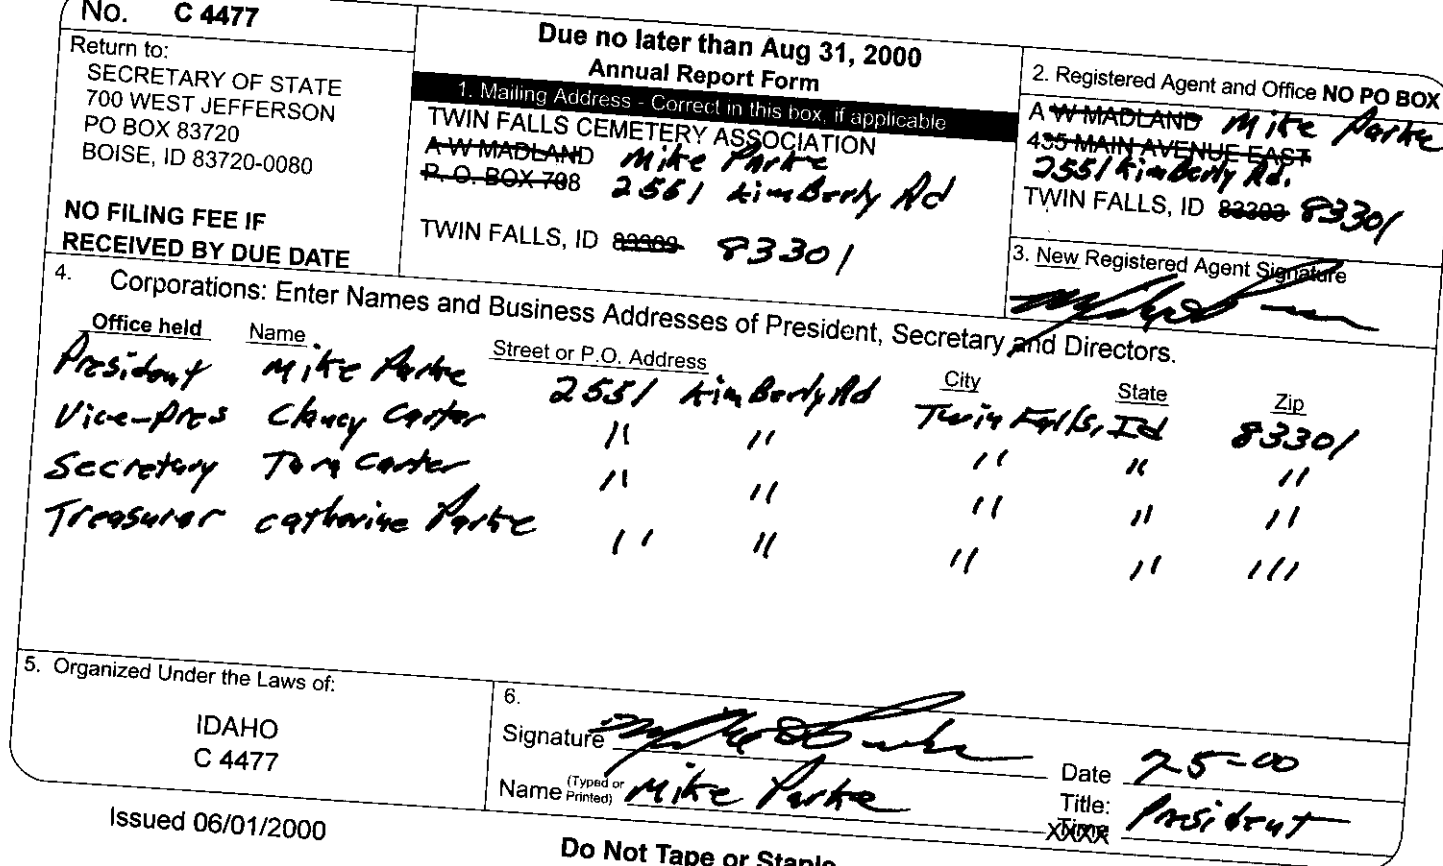 No. C 4477
Return to:
SECRETARY OF STATE
700 WEST JEFFERSON
PO BOX 83720
BOISE, ID 83720-0080
NO FILING FEE IF
RECEIVED BY DUE DATE
Due no later than Aug 31, 2000
Annual Report Form
1. Mailing Address - Correct in this box, if applicable
TWIN FALLS CEMETERY ASSOCIATION
A W MADLAND Mike Parke
P. O. BOX 708 2551 KimBerly Rd
TWIN FALLS, ID 83303 83301
2. Registered Agent and Office NO PO BOX
A W MADLAND Mike Parke
435 MAIN AVENUE EAST
2551 KimBerly Rd.
TWIN FALLS, ID 83303 83301
3. New Registered Agent Signature
4. Corporations: Enter Names and Business Addresses of President, Secretary and Directors.
Office held Name Street or P.O. Address City State Zip
President Mike Parke 2551 KimBerly Rd Twin Falls, Id 83301
Vice-Pres Clancy Carter " " " " "
Secretary Tom Carter " " " " "
Treasurer Catherine Parke " " " " "
5. Organized Under the Laws of:
IDAHO
C 4477
6.
Signature
Name (Typed or Printed) Mike Parke
Date 7-5-00
Title: President
Issued 06/01/2000
Do Not Tape or Staple